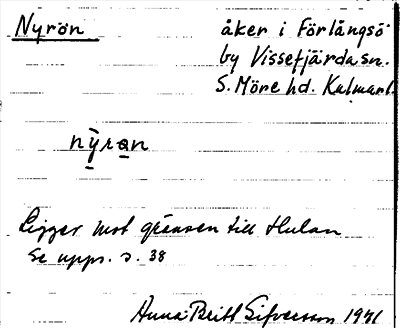 Nyrön
åker i Förlångsö
by Vissefjärda sn.
S. Möre hd. Kalmar l.
nỳrən
Ligger mot gränsen till Hulan
Se upps. s. 38
Anna-Britt Sifversson 1941